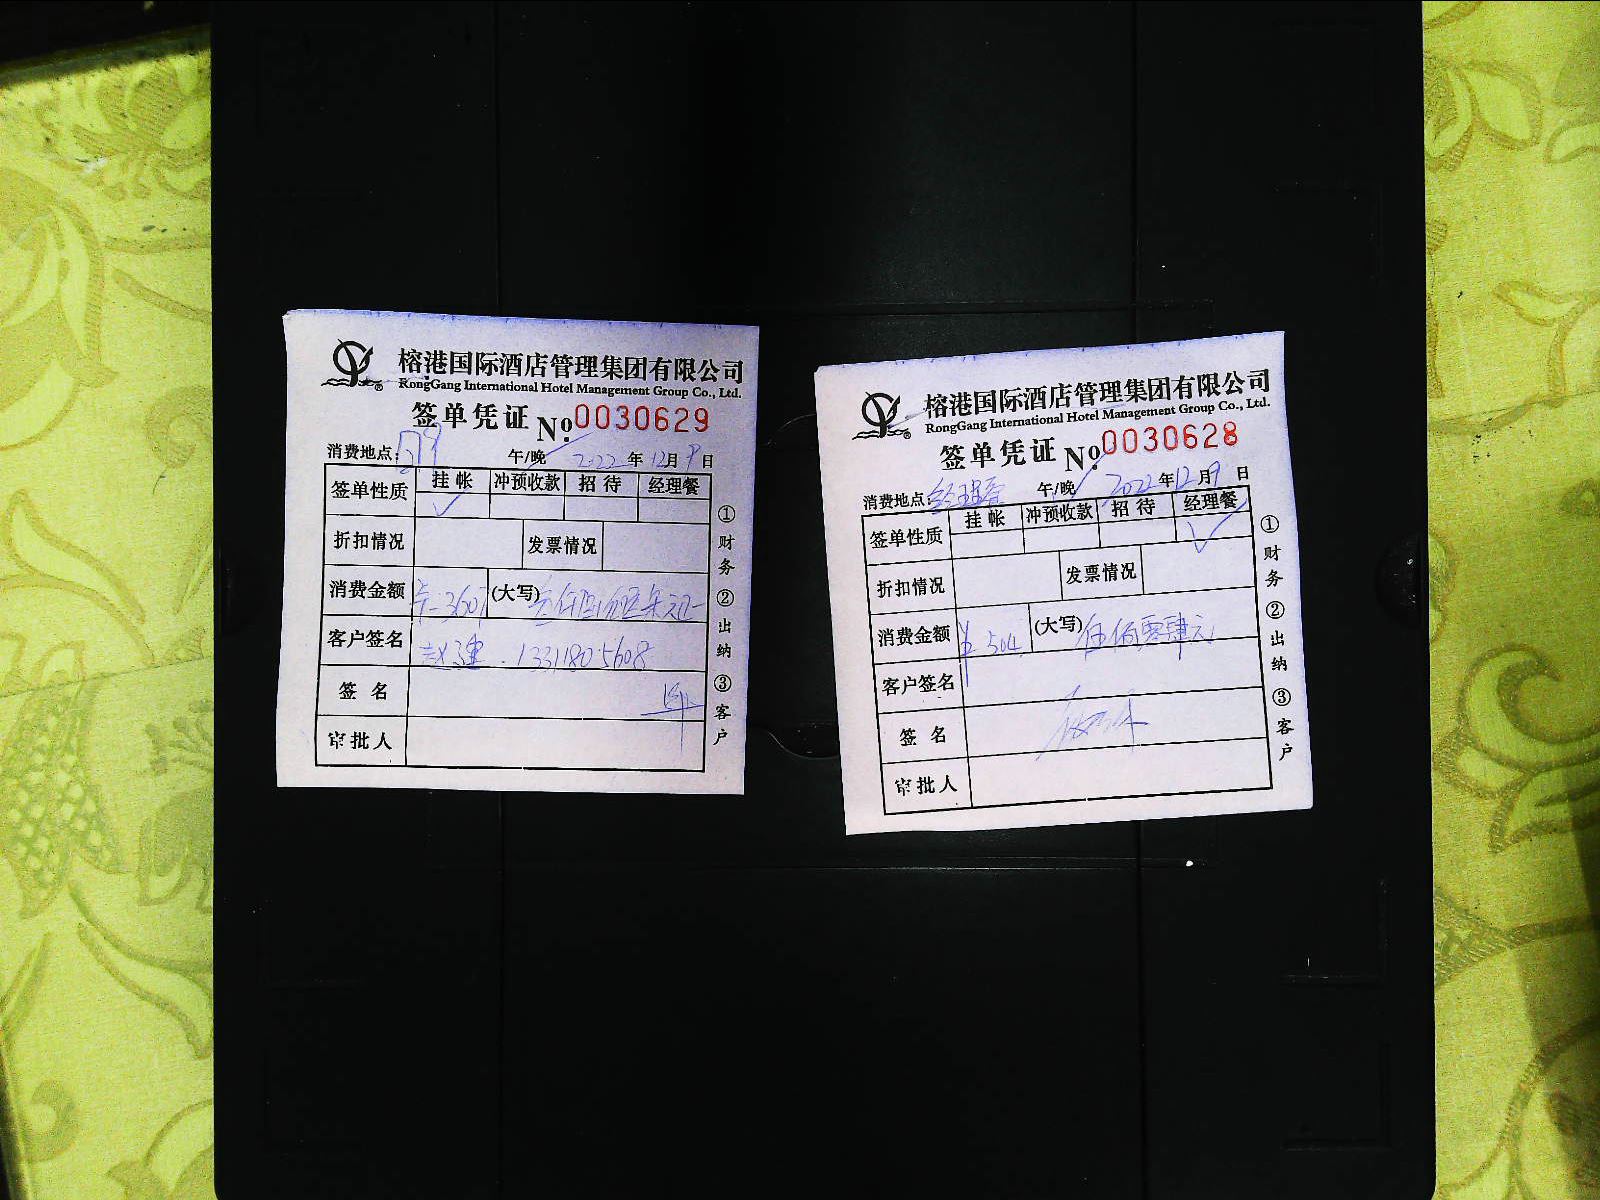 榕港国际酒店管理集团有限公司
RongGang International Hotel Management Group Co., Ltd.
签单凭证 No.0030629
消费地点: 午/晚 2022年12月9日
签单性质 挂帐 冲预收款 招待 经理餐
✓
折扣情况 发票情况
消费金额 (大写)
客户签名 赵建 13311805608
签名
审批人
①财务 ②出纳 ③客户
榕港国际酒店管理集团有限公司
RongGang International Hotel Management Group Co., Ltd.
签单凭证 No.0030628
消费地点:经理餐 午/晚 2022年12月9日
签单性质 挂帐 冲预收款 招待 经理餐
✓
折扣情况 发票情况
消费金额 ¥504 (大写)伍佰零肆元
客户签名
签名
审批人
①财务 ②出纳 ③客户